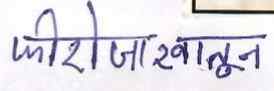 फीरोजा खातून